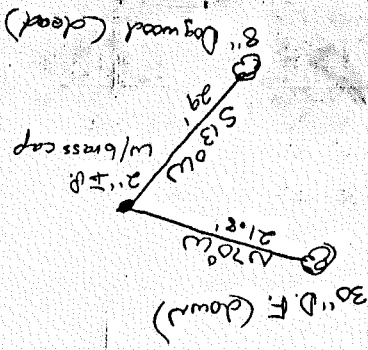 30" D.F. (down)
N70°W
21.8'
2" I.P.
w/brass cap
S13°W
29'
8" Dogwood (dead)